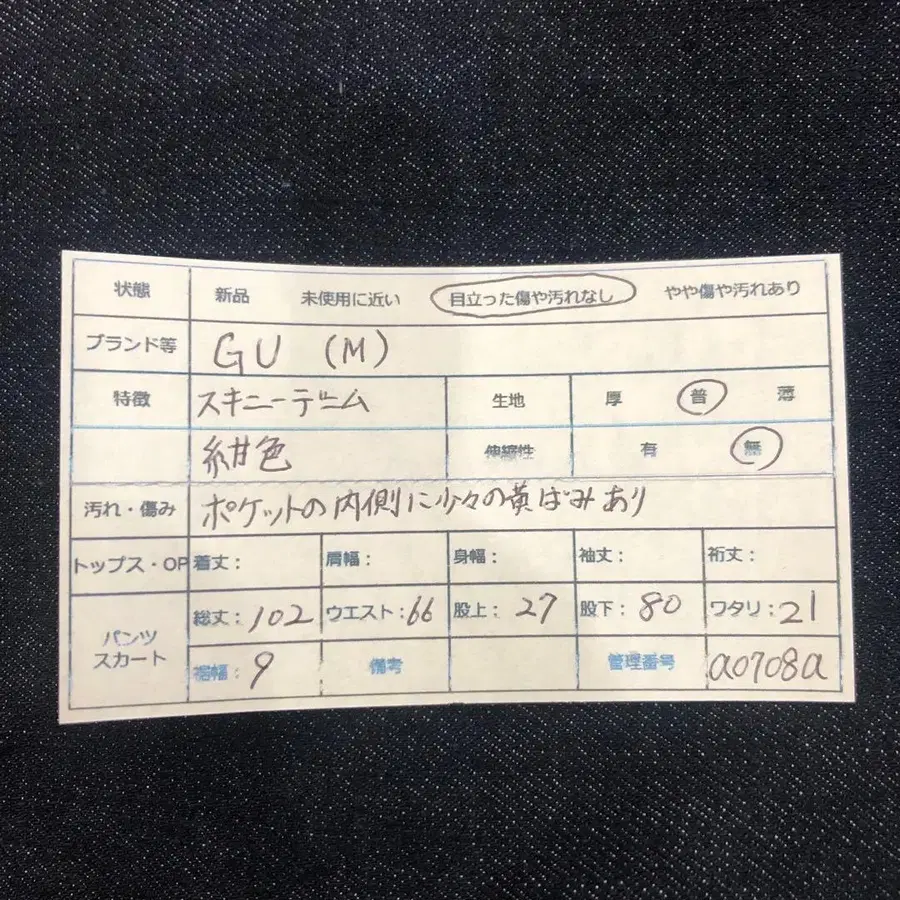 状態 新品 未使用に近い 目立った傷や汚れなし やや傷や汚れあり
ブランド等 GU (M)
特徴 スキニーデニム 生地 厚 普 薄
紺色 伸縮性 有 無
汚れ・傷み ポケットの内側に少々の黄ばみあり
トップス・OP 着丈: 肩幅: 身幅: 袖丈: 裄丈:
パンツ
スカート
総丈:102 ウエスト:66 股上:27 股下:80 ワタリ:21
裾幅:9 備考 管理番号 a0708a